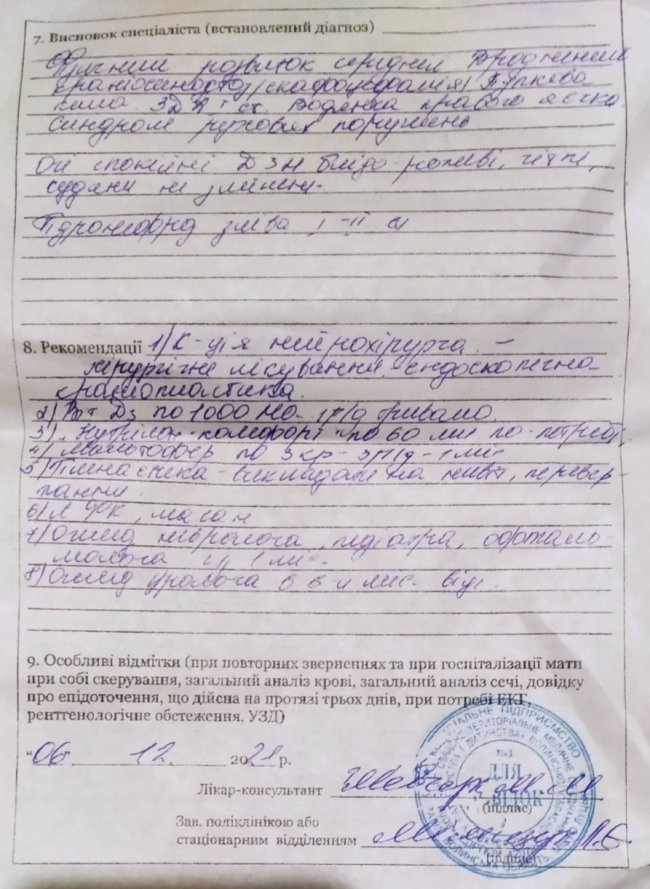 7. Висновок спеціаліста (встановлений діагноз)
Фізичний розвиток середній Вроджений
краніосиностоз /скафоцефалія/ Пупкова
кила ЗДА I ст. Водянка правого яєчка
Синдром рухових порушень
Очі спокійні ДЗН блідо-рожеві, чіткі,
судини не змінені.
Гідронефроз зліва I-II ст
8. Рекомендації 1) К-ція нейрохірурга. –
хірургічне лікування ендоскопічна
краніопластика.
2) Віт Д3 по 1000 МО 1р/д тривало
3) "Нутрілон-комфорт" по 60 мл по-потребі,
4) Мальтофер по 3 кр- 1 міс
5) Гімнастика - викладати на живіт, перевер-
тання.
6) ЛФК, масаж
7) Огляд невролога, педіатра, офтальмо-
молога 1 міс.
8) Огляд уролога в 6-и міс. віці
9. Особливі відмітки (при повторних зверненнях та при госпіталізації мати
при собі скерування, загальний аналіз крові, загальний аналіз сечі, довідку
про епідоточення, що дійсна на протязі трьох днів, при потребі ЕКГ,
рентгенологічне обстеження, УЗД)
"06 12. 2021 р.
Лікар-консультант
(підпис)
Зав. поліклінікою або
стаціонарним відділенням
(підпис)
№3
ДЛЯ
ДОВІДОК